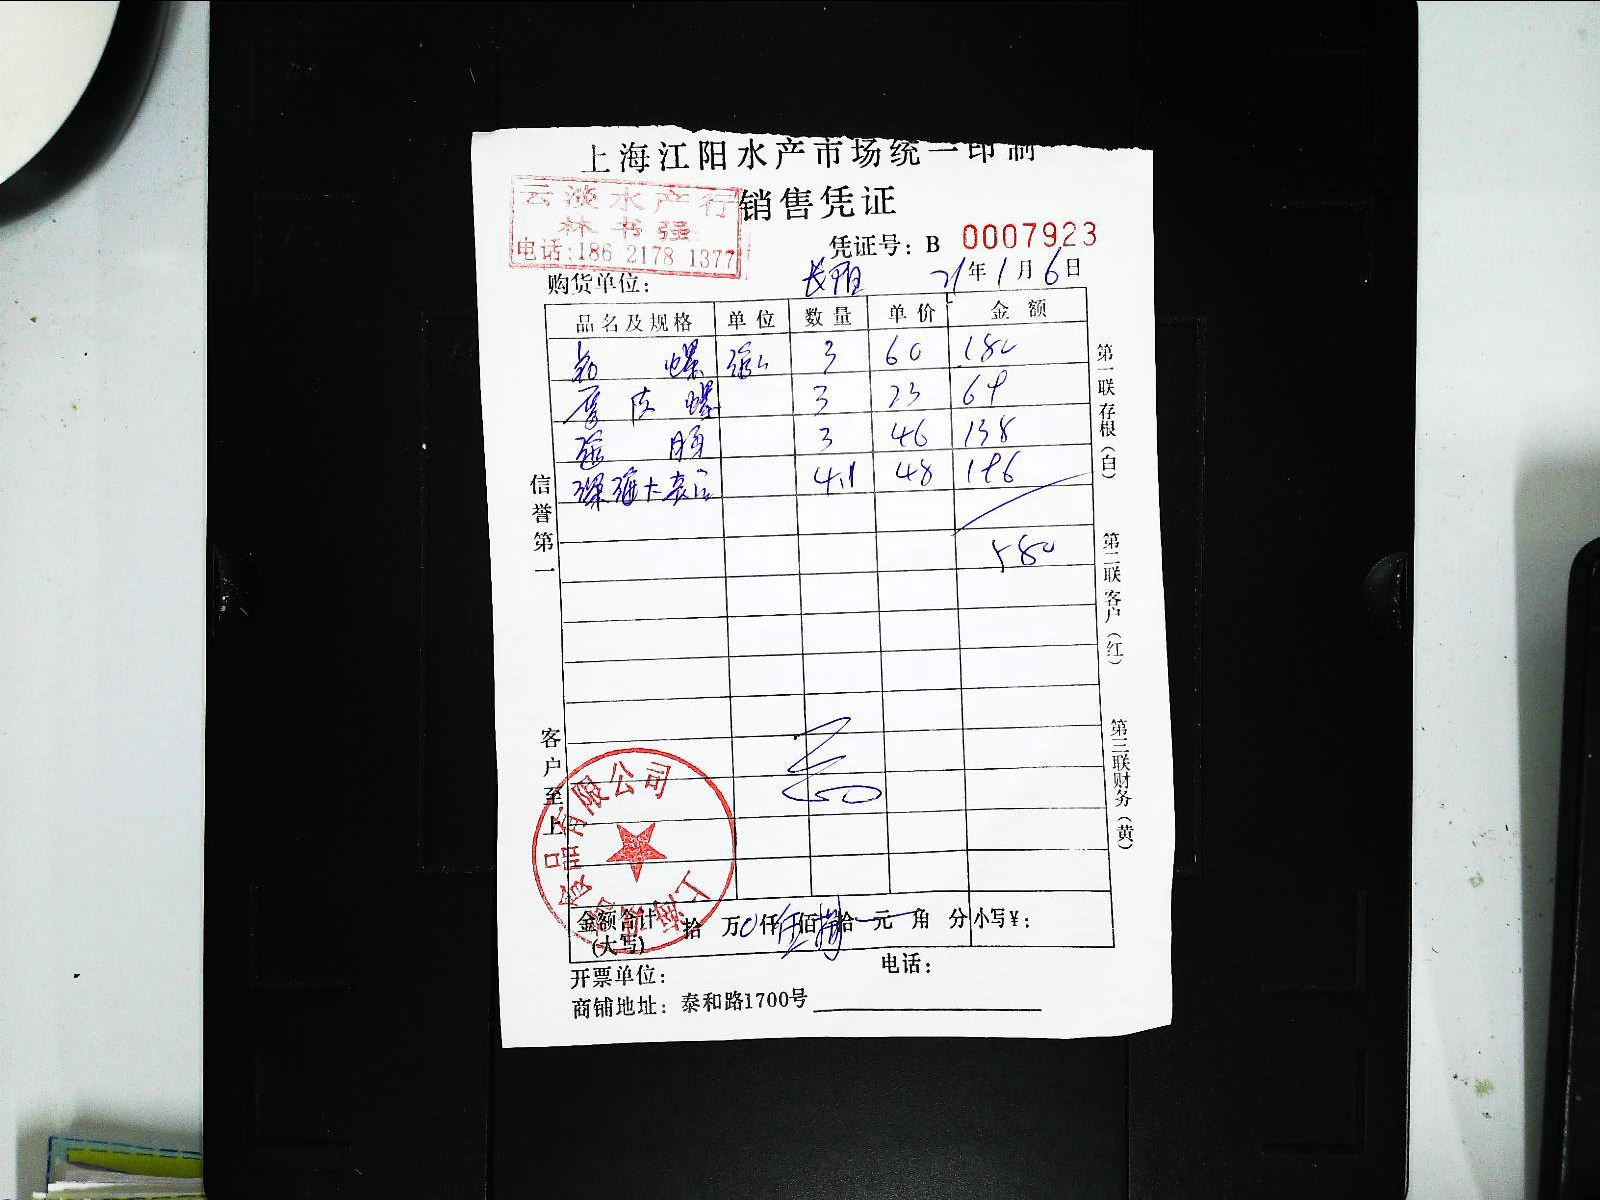 上海江阳水产市场统一印制
云淡水产行
林书强
电话:186 2178 1377
销售凭证
凭证号: B 0007923
购货单位: 长阳 21年1月6日
品名及规格 单位 数量 单价 金额
螺 3 60 180
螺 3 23 69
3 46 138
4.1 48 196
580
信誉第一
客户至上
第一联存根(白)
第二联客户(红)
第三联财务(黄)
有限公司
金额合计(大写) 拾 万0仟伍佰捌拾 元 角 分 小写¥:
开票单位: 电话:
商铺地址: 泰和路1700号